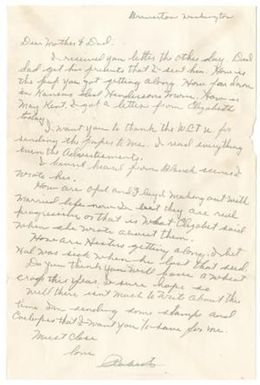 Bremerton Washington
Dear Mother & Dad.
I received you letter the other day. Did
dad get his presents that I sent him. How is
the pup you got getting along. How far down
in Kansas is Henderson's Town. How is
May Kent. I got a letter from Elizabeth
today
I want you to thank the W.C.T.U for
sending the paper to me. I read everything
even the Advertisements.
I haven't heard from since I
wrote her.
How are Opal and Floyd making out with
married life now I bet they are real
progressive or that is what Elizabet said
when she wrote about them.
How are getting along. I bet
Hal was sick when he lost that seed.
Do you think you will have a wheat
crop this year. I sure hope so
Well there isn't much to write about this
time I'm sending some stamp and
Envelopes that I want you to save for me.
Must Close
love